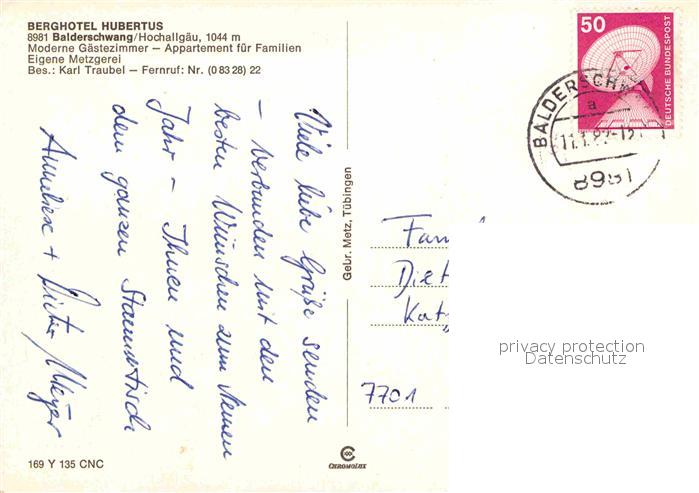 BERGHOTEL HUBERTUS
8981 Balderschwang/Hochallgäu, 1044 m
Moderne Gästezimmer — Appartement für Familien
Eigene Metzgerei
Bes.: Karl Traubel — Fernruf: Nr. (0 83 28) 22
Viele liebe Grüße senden
– verbunden mit den
besten Wünschen zum Neuen
Jahr – Ihnen und
dem ganzen Stammtisch
Anneliese + Dieter Meyer
169 Y 135 CNC
Gebr. Metz, Tübingen
CHROMOLUX
50
DEUTSCHE BUNDESPOST
BALDERSCHW
a
8981
Fam
Diet
Kat
7701
privacy protection
Datenschutz